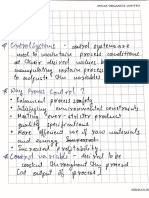 INDIAN ORGANICS LIMITED
* Control Systems - Control system are
used to maintain process conditions
at their desired values by
manipulating certain process
to adjust the variables
* Why Process Control ?
• Enhanced process safety
• Satisfying environmental constraints
• Meeting ever-stricter product
quality specifications
• More efficient use of raw materials
and energy
• Increased profitability
* Control variable - desired to be
control to the process
(at output of process)